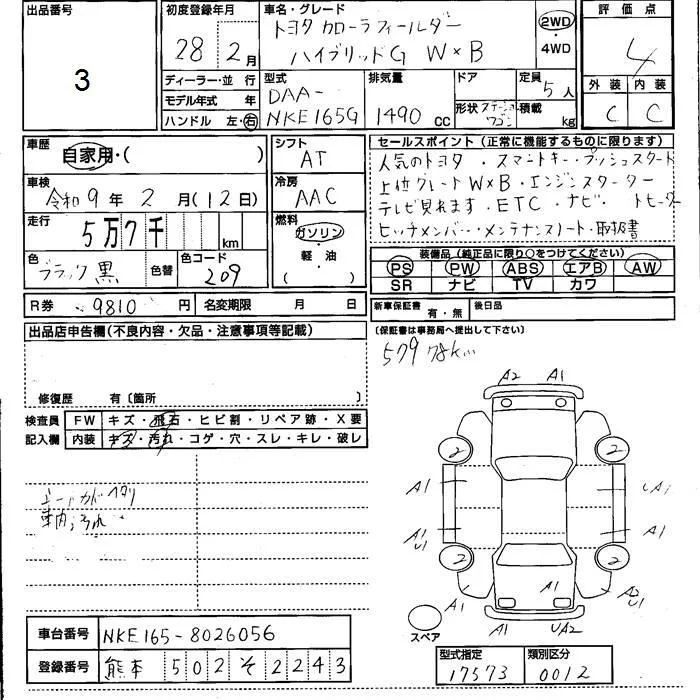 出品番号
3
初度登録年月
28年 2月
車名・グレード
トヨタ カローラフィールダー
ハイブリッドG W×B
2WD
・
4WD
評価点
4
外装 内装
C C
ディーラー・並行
モデル年式 年
ハンドル 左・右
型式
DAA-
NKE165G
排気量
1490 CC
ドア
形状 ステーションワゴン
定員
5人
積載
kg
車歴
自家用・( )
車検
令和9年 2月(12日)
走行
5万7千 km
色
ブラック 黒
色替
色コード
209
シフト
AT
冷房
AAC
燃料
ガソリン
・
軽・油
( )
セールスポイント(正常に機能するものに限ります)
人気のトヨタ・スマートキー・プッシュスタート
上位グレードW×B・エンジンスターター
テレビ見れます・ETC・ナビ・トヒーター
ヒッチメンバー・メンテナンスノート・取扱書
装備品(純正品に限り○をつけてください)
PS PW ABS エアB AW
SR ナビ TV カワ
R券 9810円
名変期限 月 日
新車保証書 有・無
後日品
(保証書は事務局へ提出して下さい)
出品店申告欄(不良内容・欠品・注意事項等記載)
579 78k
修復歴 有〔箇所 〕
検査員
記入欄
FW キズ・飛石・ヒビ割・リペア跡・X要
内装 キズ・汚れ・コゲ・穴・スレ・キレ・破レ
A2 A1
2 2
A1 UA1
A1 U1 A1
2 2
A1 A1 A1 A2 U1
A1 UA2
スペア
車台番号 NKE165-8026056
登録番号 熊本 502 そ 2243
型式指定 類別区分
17573 0012